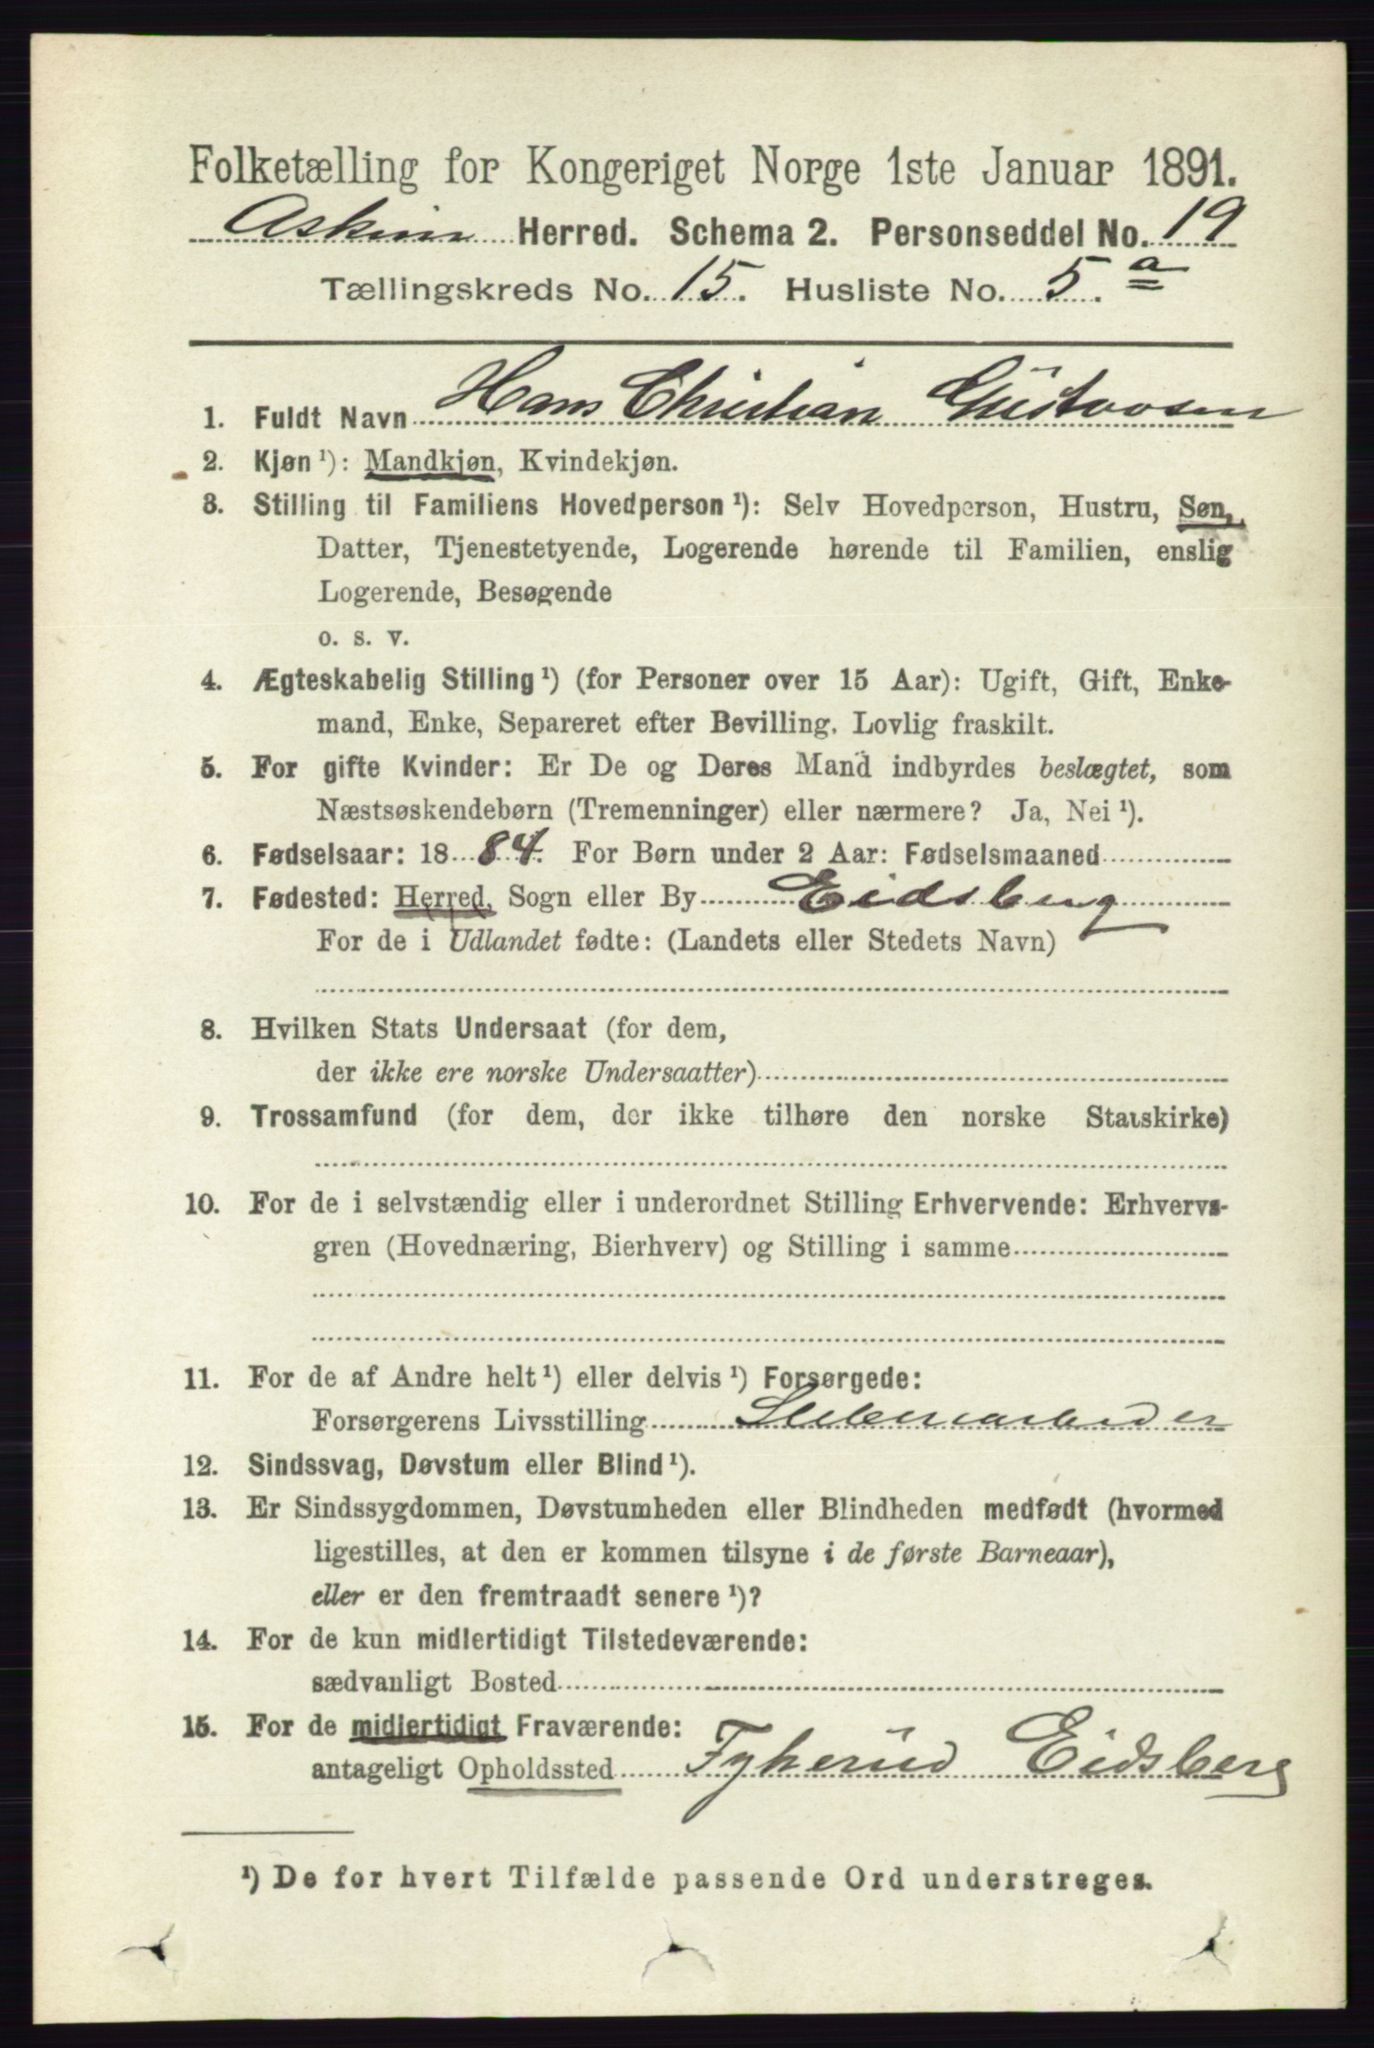 Folketælling for Kongeriget Norge 1ste Januar 1891.
Askim Herred. Schema 2. Personseddel No. 19
Tællingskreds No. 15. Husliste No. 5. a
1. Fuldt Navn Hans Christian Gustavsen
2. Kjøn ¹): Mandkjøn, Kvindekjøn.
3. Stilling til Familiens Hovedperson ¹): Selv Hovedperson, Hustru, Søn,
Datter, Tjenestetyende, Logerende hørende til Familien, enslig
Logerende, Besøgende
o. s. v.
4. Ægteskabelig Stilling ¹) (for Personer over 15 Aar): Ugift, Gift, Enke-
mand, Enke, Separeret efter Bevilling. Lovlig fraskilt.
5. For gifte Kvinder: Er De og Deres Mand indbyrdes beslægtet, som
Næstsøskendebørn (Tremenninger) eller nærmere? Ja, Nei ¹).
6. Fødselsaar: 18 84. For Børn under 2 Aar: Fødselsmaaned
7. Fødested: Herred, Sogn eller By Eidsberg
For de i Udlandet fødte: (Landets eller Stedets Navn)
8. Hvilken Stats Undersaat (for dem,
der ikke ere norske Undersaatter)
9. Trossamfund (for dem, der ikke tilhøre den norske Statskirke)
10. For de i selvstændig eller i underordnet Stilling Erhvervende: Erhvervs-
gren (Hovednæring, Bierhverv) og Stilling i samme
11. For de af Andre helt ¹) eller delvis ¹) Forsørgede:
Forsørgerens Livsstilling
12. Sindssvag, Døvstum eller Blind ¹).
13. Er Sindssygdommen, Døvstumheden eller Blindheden medfødt (hvormed
ligestilles, at den er kommen tilsyne i de første Barneaar),
eller er den fremtraadt senere ¹)?
14. For de kun midlertidigt Tilstedeværende:
sædvanligt Bosted
15. For de midlertidigt Fraværende:
antageligt Opholdssted Fykerud Eidsberg
¹) De for hvert Tilfælde passende Ord understreges.